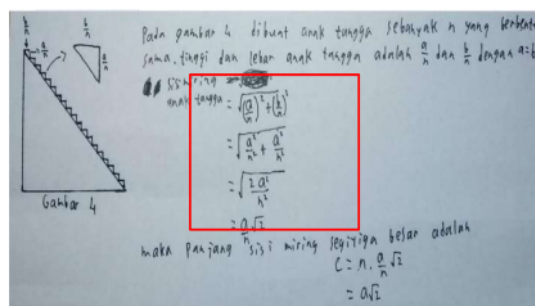 b/n
a/n
b/n
a/n
Gambar 4
Pada gambar 4 dibuat anak tangga sebanyak n yang berbent
sama. tinggi dan lebar anak tangga adalah a/n dan b/n dengan a=b
sisi miring
anak tangga = √((a/n)² + (b/n)²)
= √(a²/n² + a²/n²)
= √(2a²/n²)
= a/n √2
maka panjang sisi miring segitiga besar adalah
C = n . a/n √2
= a√2